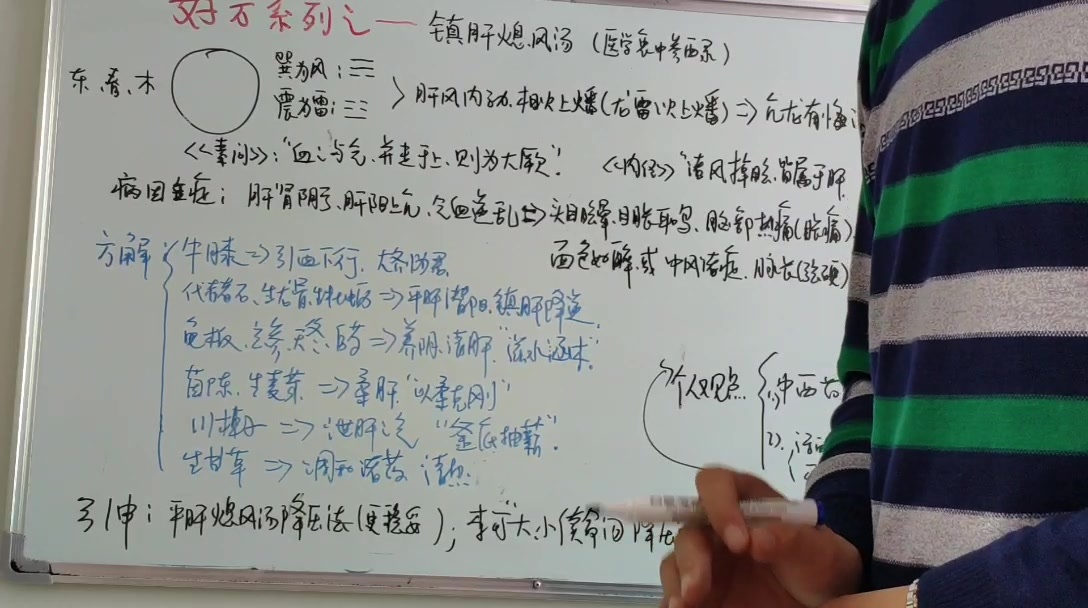 对方系列之一 镇肝熄风汤 (医学衷中参西录)
东、春、木
巽为风:☴
震为雷:☳
肝风内动.相火上燔(龙雷火上燔) ⇒ 亢龙有悔
《素问》:"血之与气.并走于上.则为大厥". 《内经》"诸风掉眩.皆属于肝
病因主症: 肝肾阴亏.肝阳上亢.气血逆乱 ⇒ 头目眩晕.目胀耳鸣.脑部热痛(胀痛)
面色如醉.或中风诸症.脉长(弦硬)
方解 { 牛膝 ⇒ 引血下行.
代赭石、生龙骨、生牡蛎 ⇒ 平肝潜阳.镇肝降逆.
龟板、玄参、天冬、白芍 ⇒ 养阴.清肝."滋水涵木".
茵陈、生麦芽 ⇒ 柔肝"以柔克刚"
川楝子 ⇒ 泄肝气 "釜底抽薪".
生甘草 ⇒ 调和诸药 清热.
个人观点 { 1).中西
2).
引申: 平肝熄风汤降压法(更稳妥);李可大、小 降压